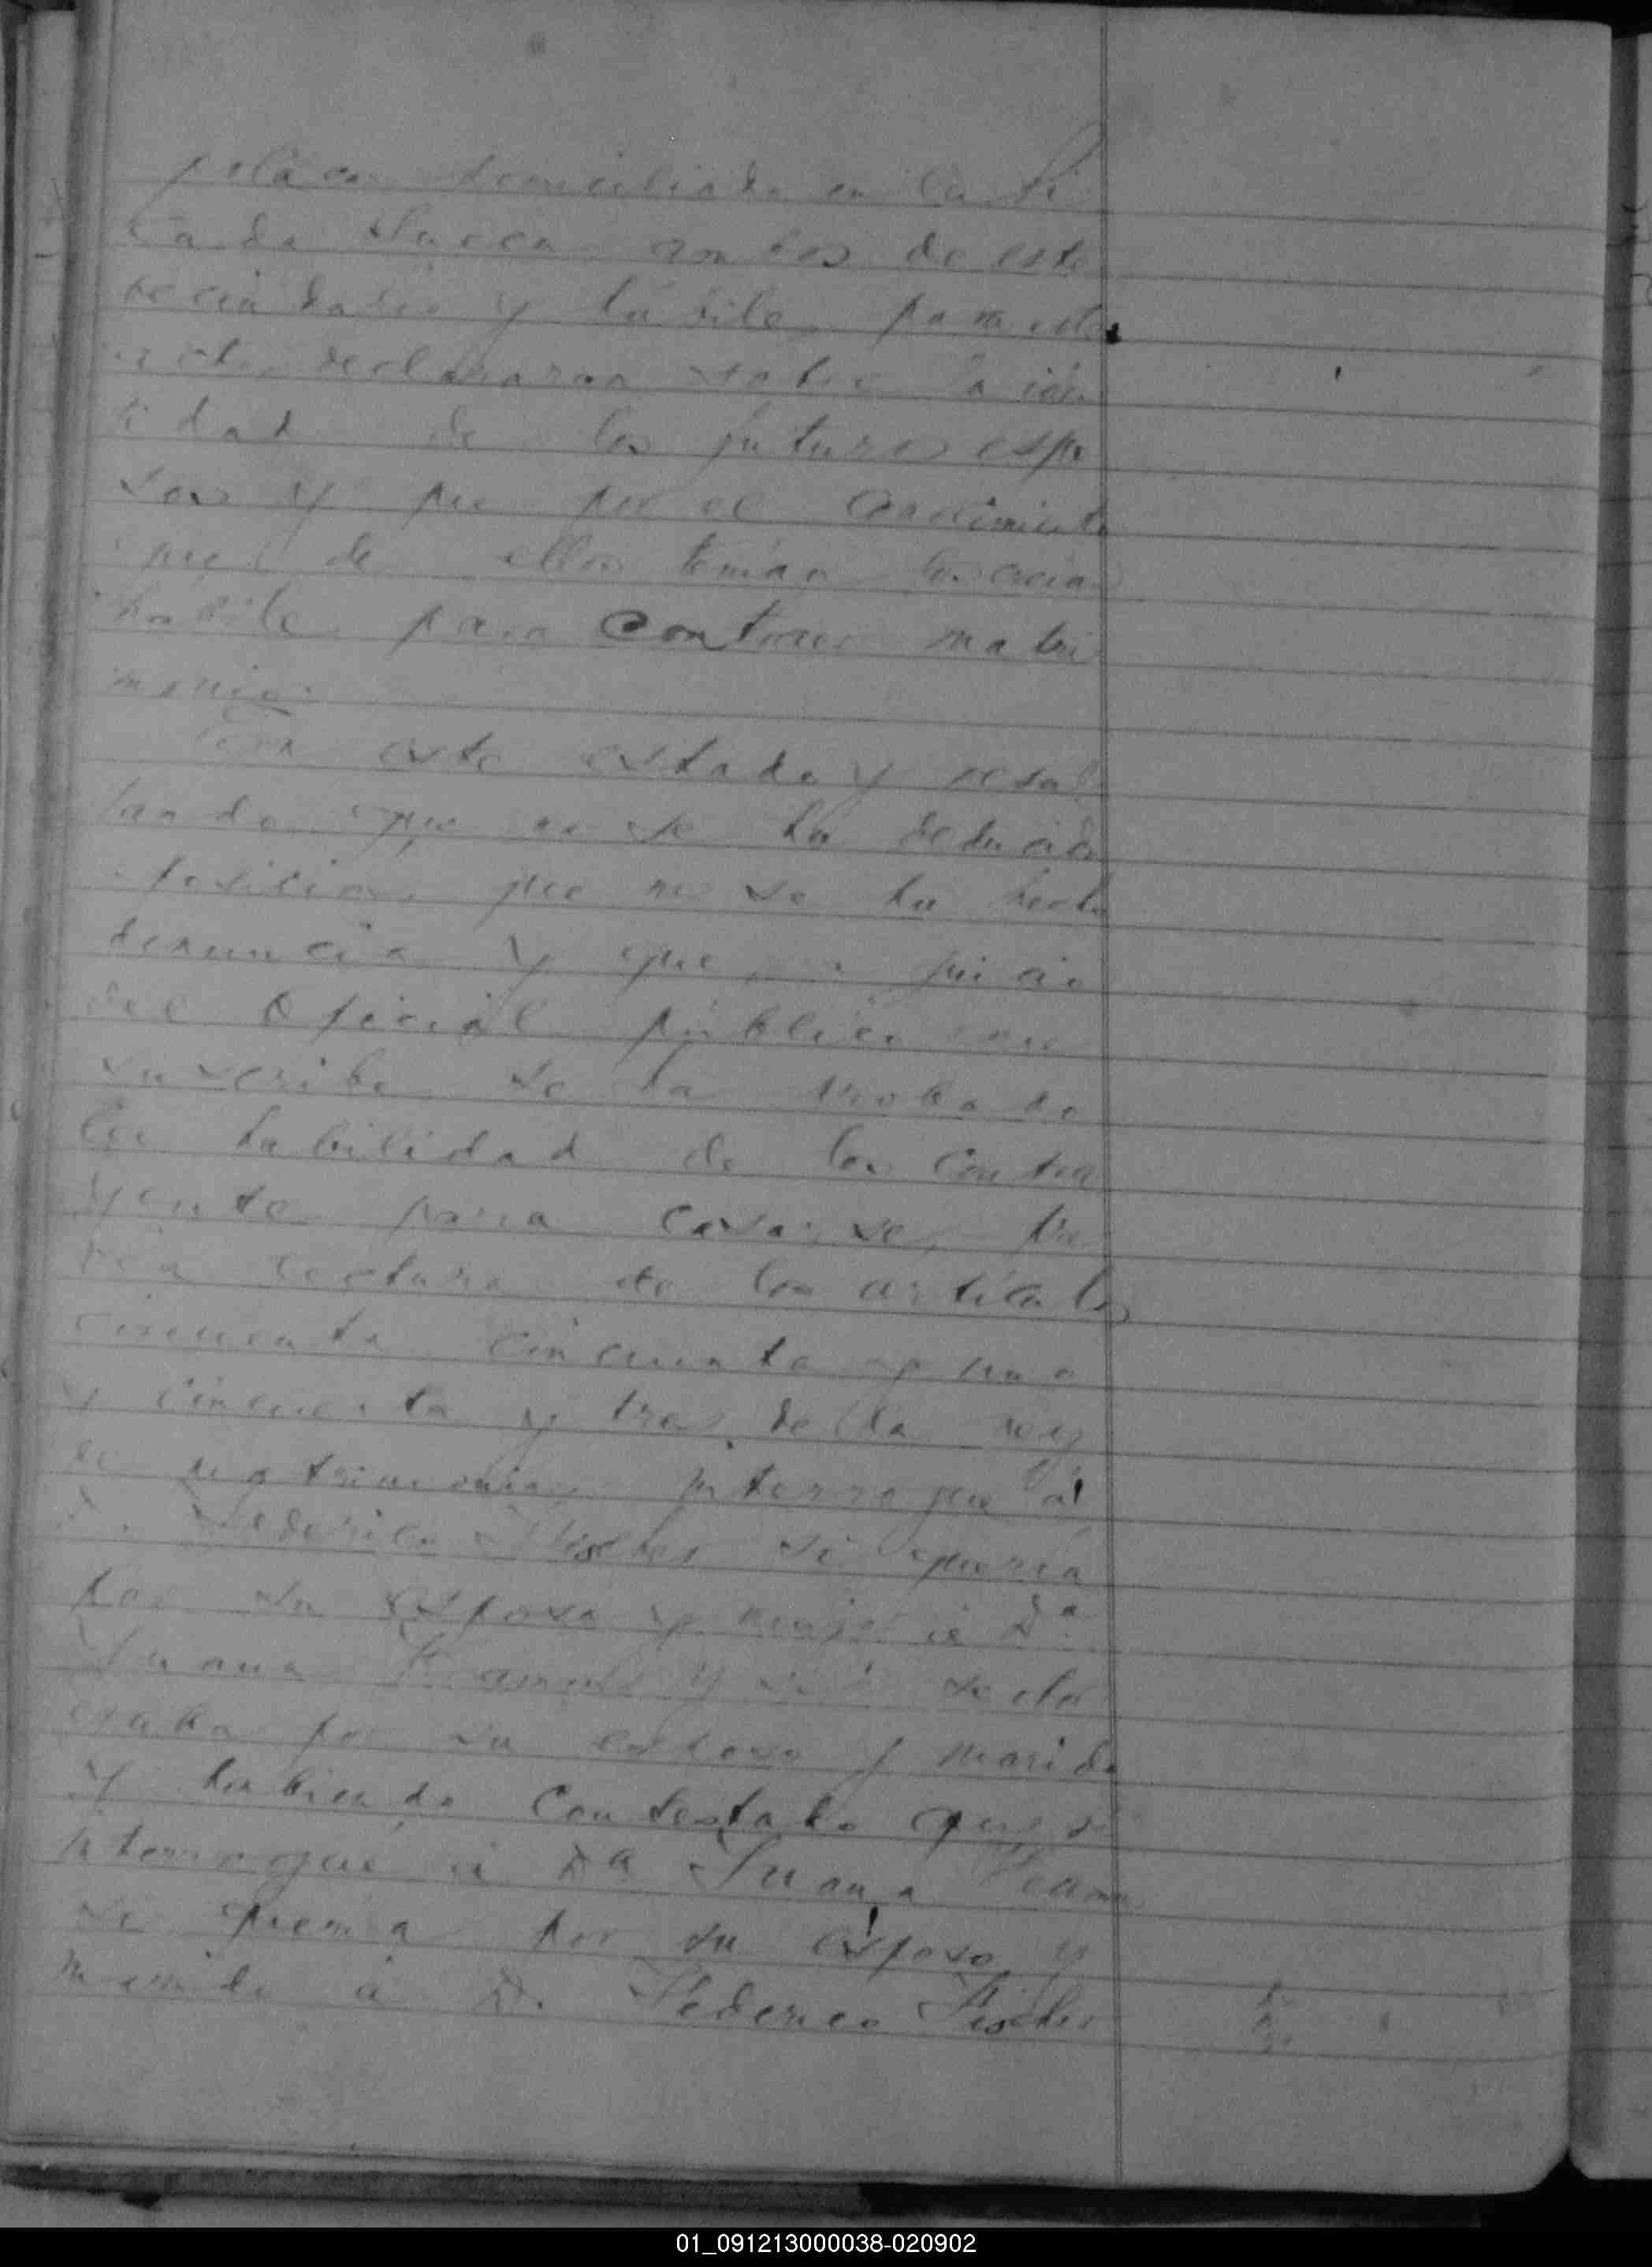 domiciliada en la Ri
ca da ambos de este
vecindario y hábiles para este
acto, declararon sobre la iden
tidad de los futuros espo
sos y que por el conocimiento
que de ellos tenían los creían
hábiles para contraer matri
monio.
En este estado y resul
tando que no se ha deducido
oposición, que no se ha hecho
denuncia y que, a juicio
del Oficial público que
suscribe se ha probado
la habilidad de los contra
yentes para casarse, pre
via lectura de los artículos
cincuenta cincuenta y uno
y cincuenta y tres de la ley
de matrimonio, interrogué á
D. Federico Fischer si quería
por su esposa y mujer á Da
Juana y si se otor
gaba por su esposo y marido
y habiendo contestado que si
interrogué á Da Juana
se quería por su esposo y
marido á D. Federico Fischer
01_091213000038-020902